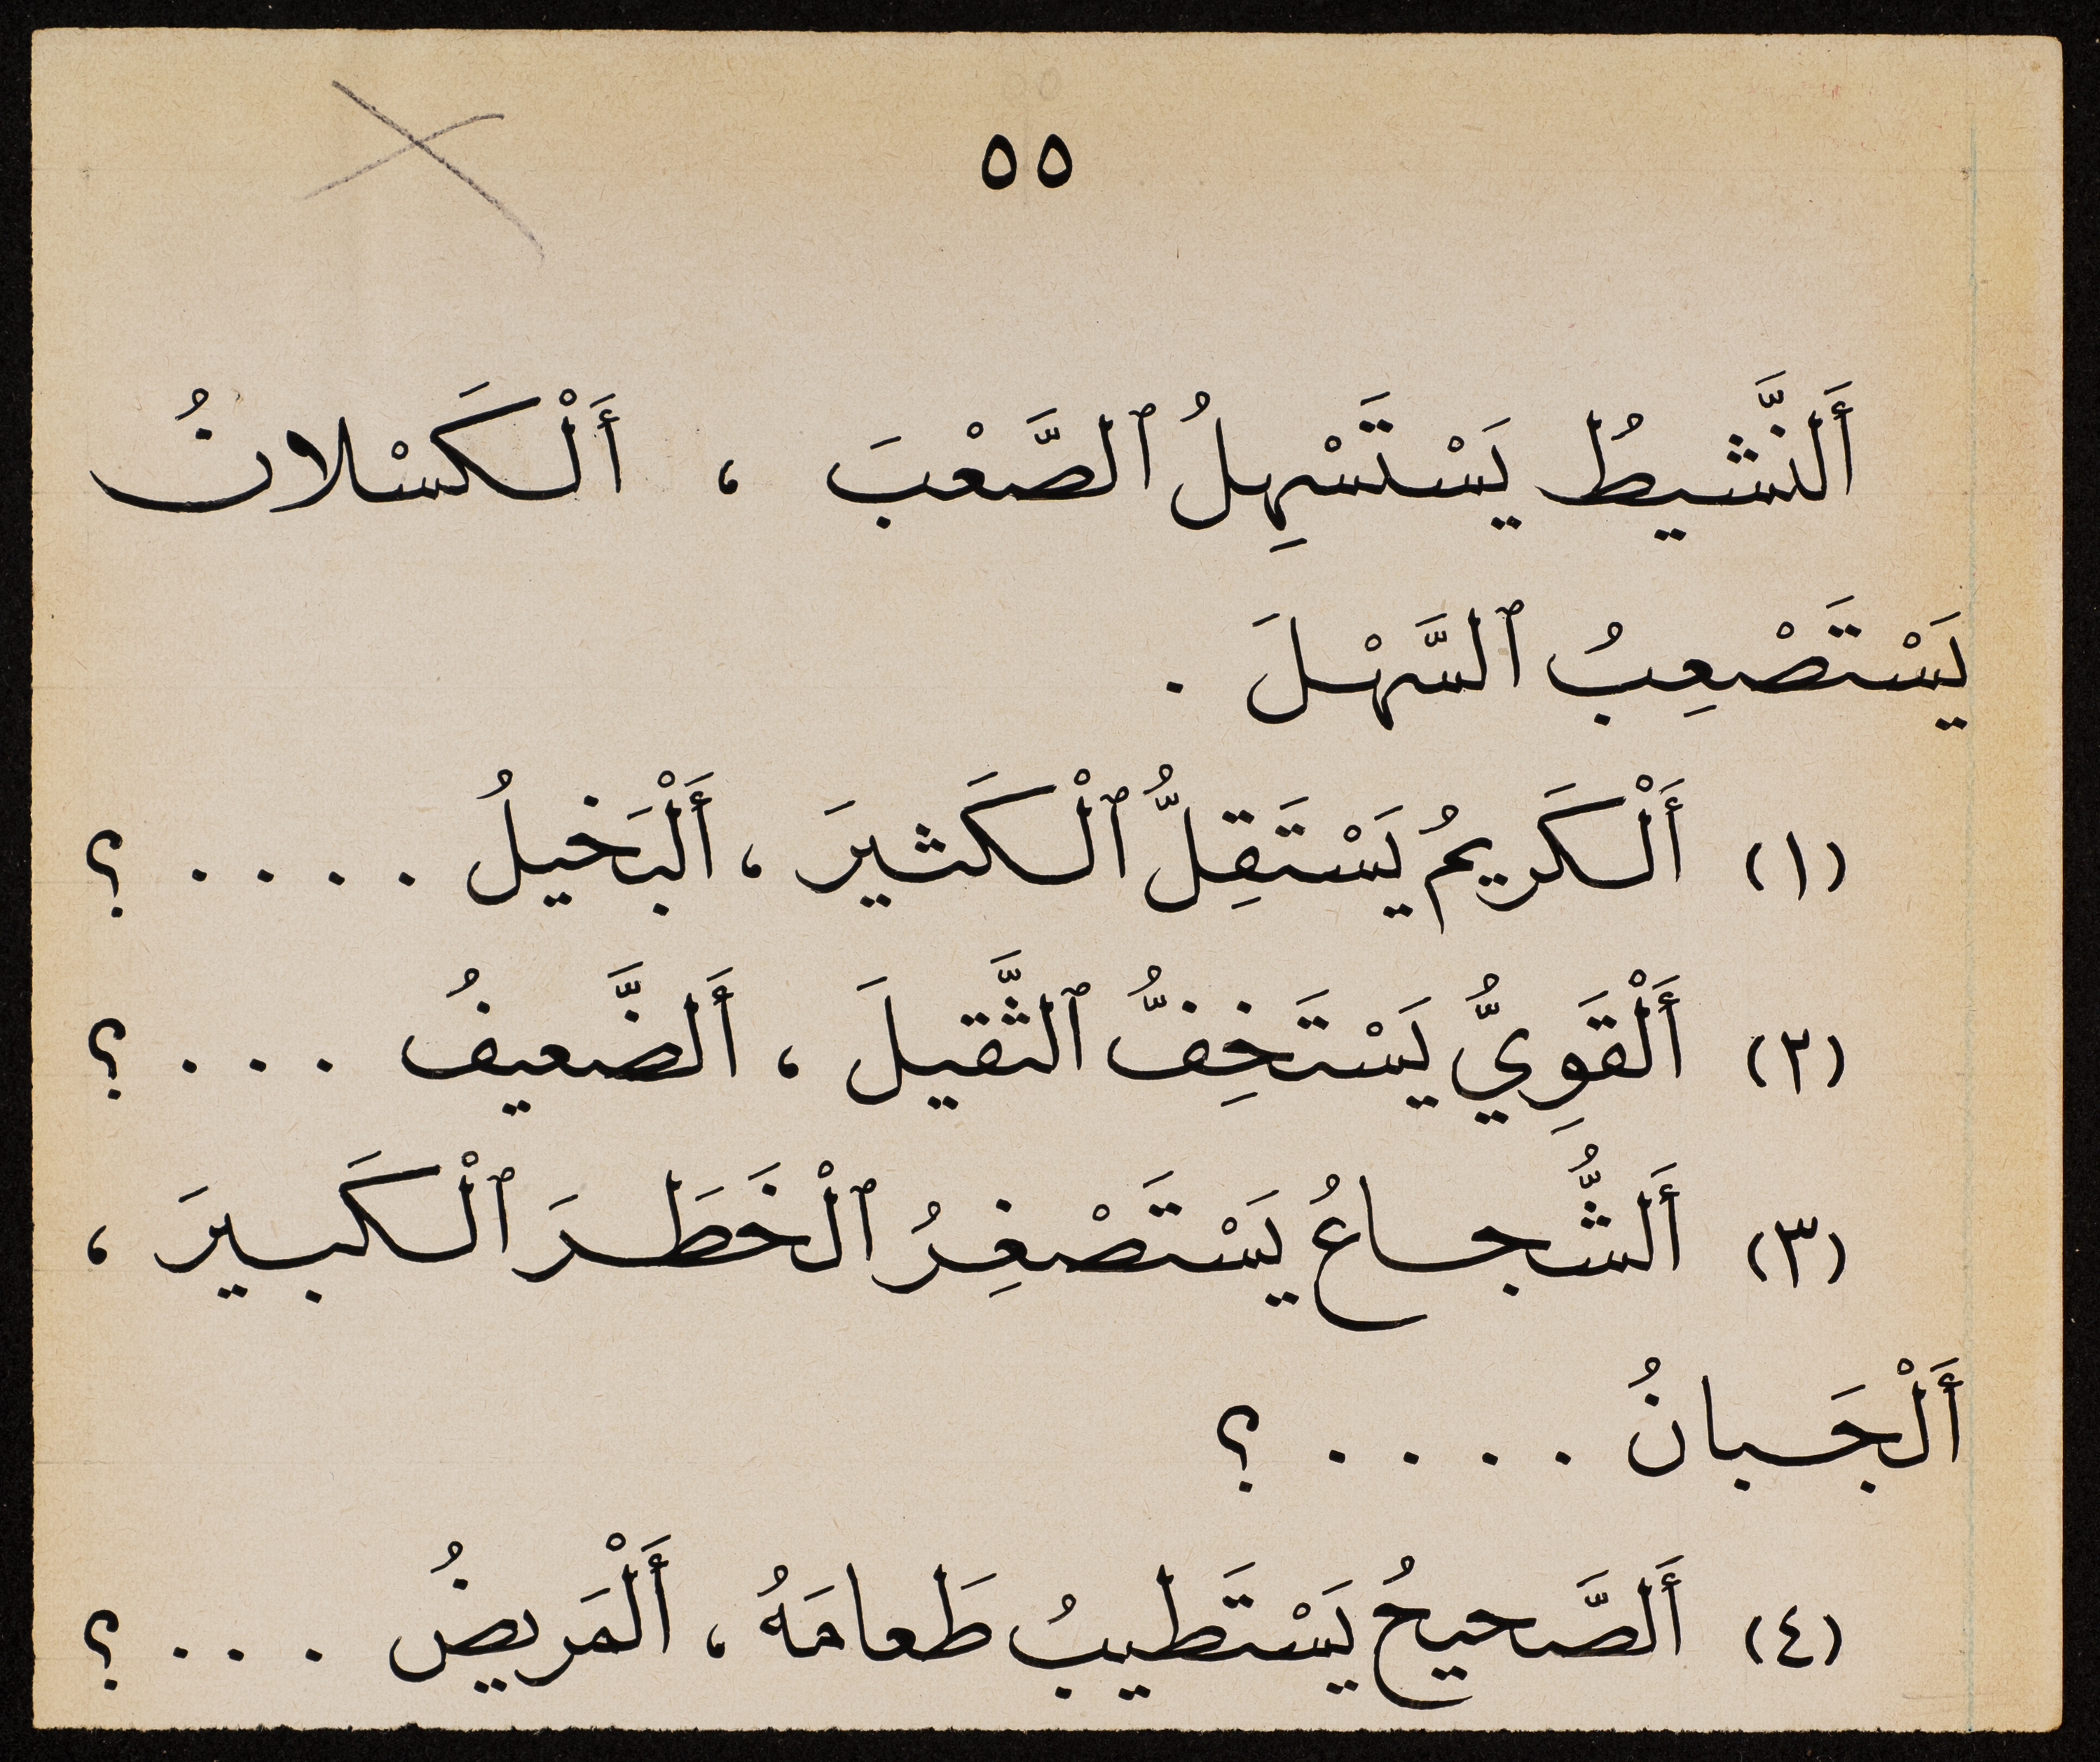 ٥٥
أَلنَّشيطُ يَسْتَسْهِلُ ٱلصَّعْبَ ، أَلْكَسْلانُ
يَسْتَصْعِبُ ٱلسَّهْلَ .
(١) أَلْكَريمُ يَسْتَقِلُّ ٱلْكَثيرَ ، أَلْبَخيلُ . . . . ؟
(٢) أَلْقَوِيُّ يَسْتَخِفُّ ٱلثَّقيلَ ، أَلضَّعيفُ . . . ؟
(٣) أَلشُّجاعُ يَسْتَصْغِرُ ٱلْخَطَرَ ٱلْكَبيرَ ،
أَلْجَبانُ . . . . ؟
(٤) أَلصَّحيحُ يَسْتَطيبُ طَعامَهُ ، أَلْمَريضُ . . . ؟